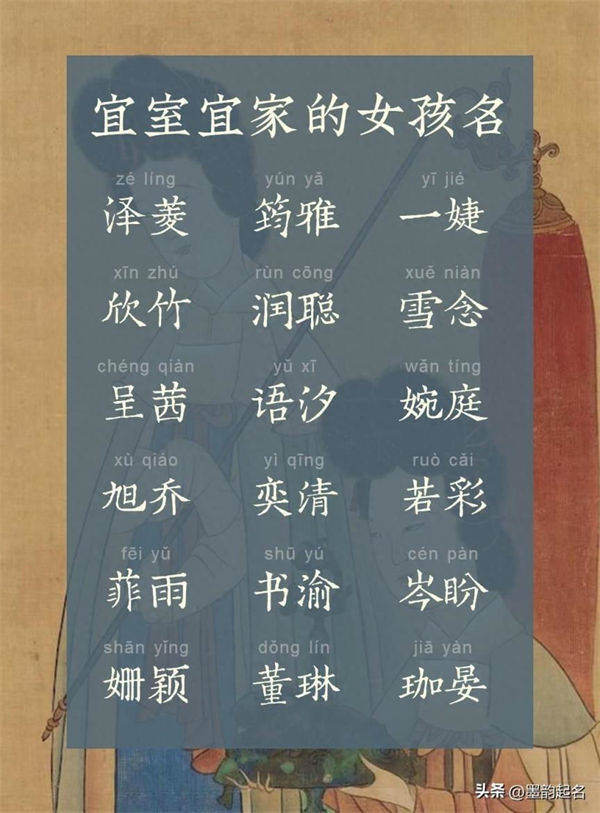 宜室宜家的女孩名
zé líng yún yǎ yī jié
泽菱 筠雅 一婕
xīn zhú rùn cōng xuě niàn
欣竹 润聪 雪念
chéng qiàn yǔ xī wǎn tíng
呈茜 语汐 婉庭
xù qiáo yì qīng ruò cǎi
旭乔 奕清 若彩
fēi yǔ shū yú cén pàn
菲雨 书渝 岑盼
shān yǐng dǒng lín jiā yàn
姗颖 董琳 珈晏
头条 @墨韵起名